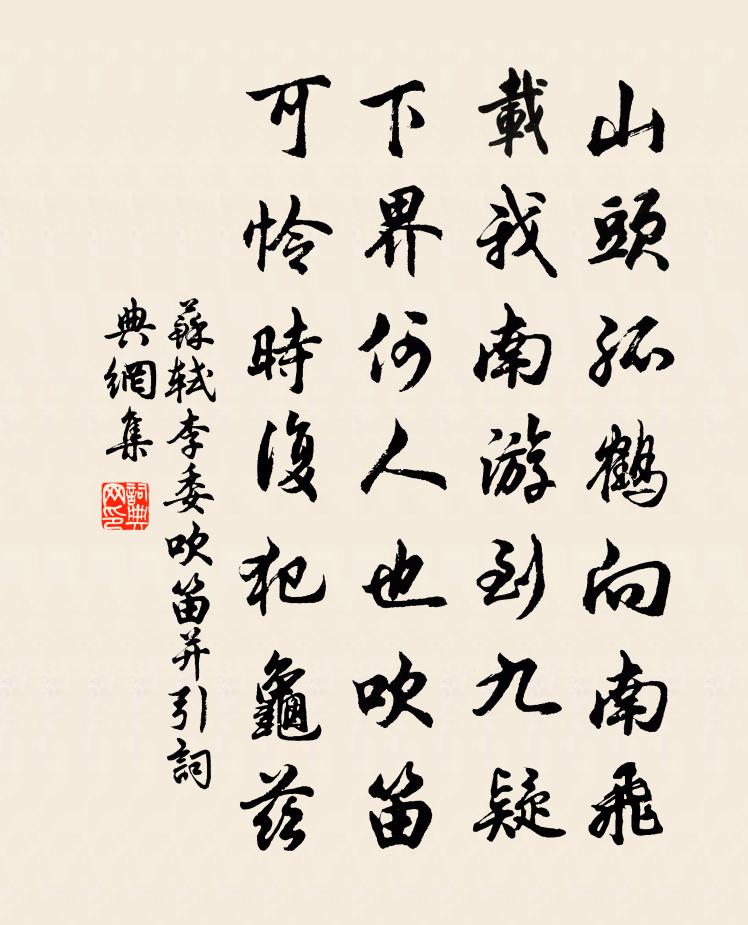 山頭孤鶴向南飛
載我南游到九疑
下界何人也吹笛
可怜時復犯龜茲
蘇軾李委吹笛并引詞
典網集
詞典网印